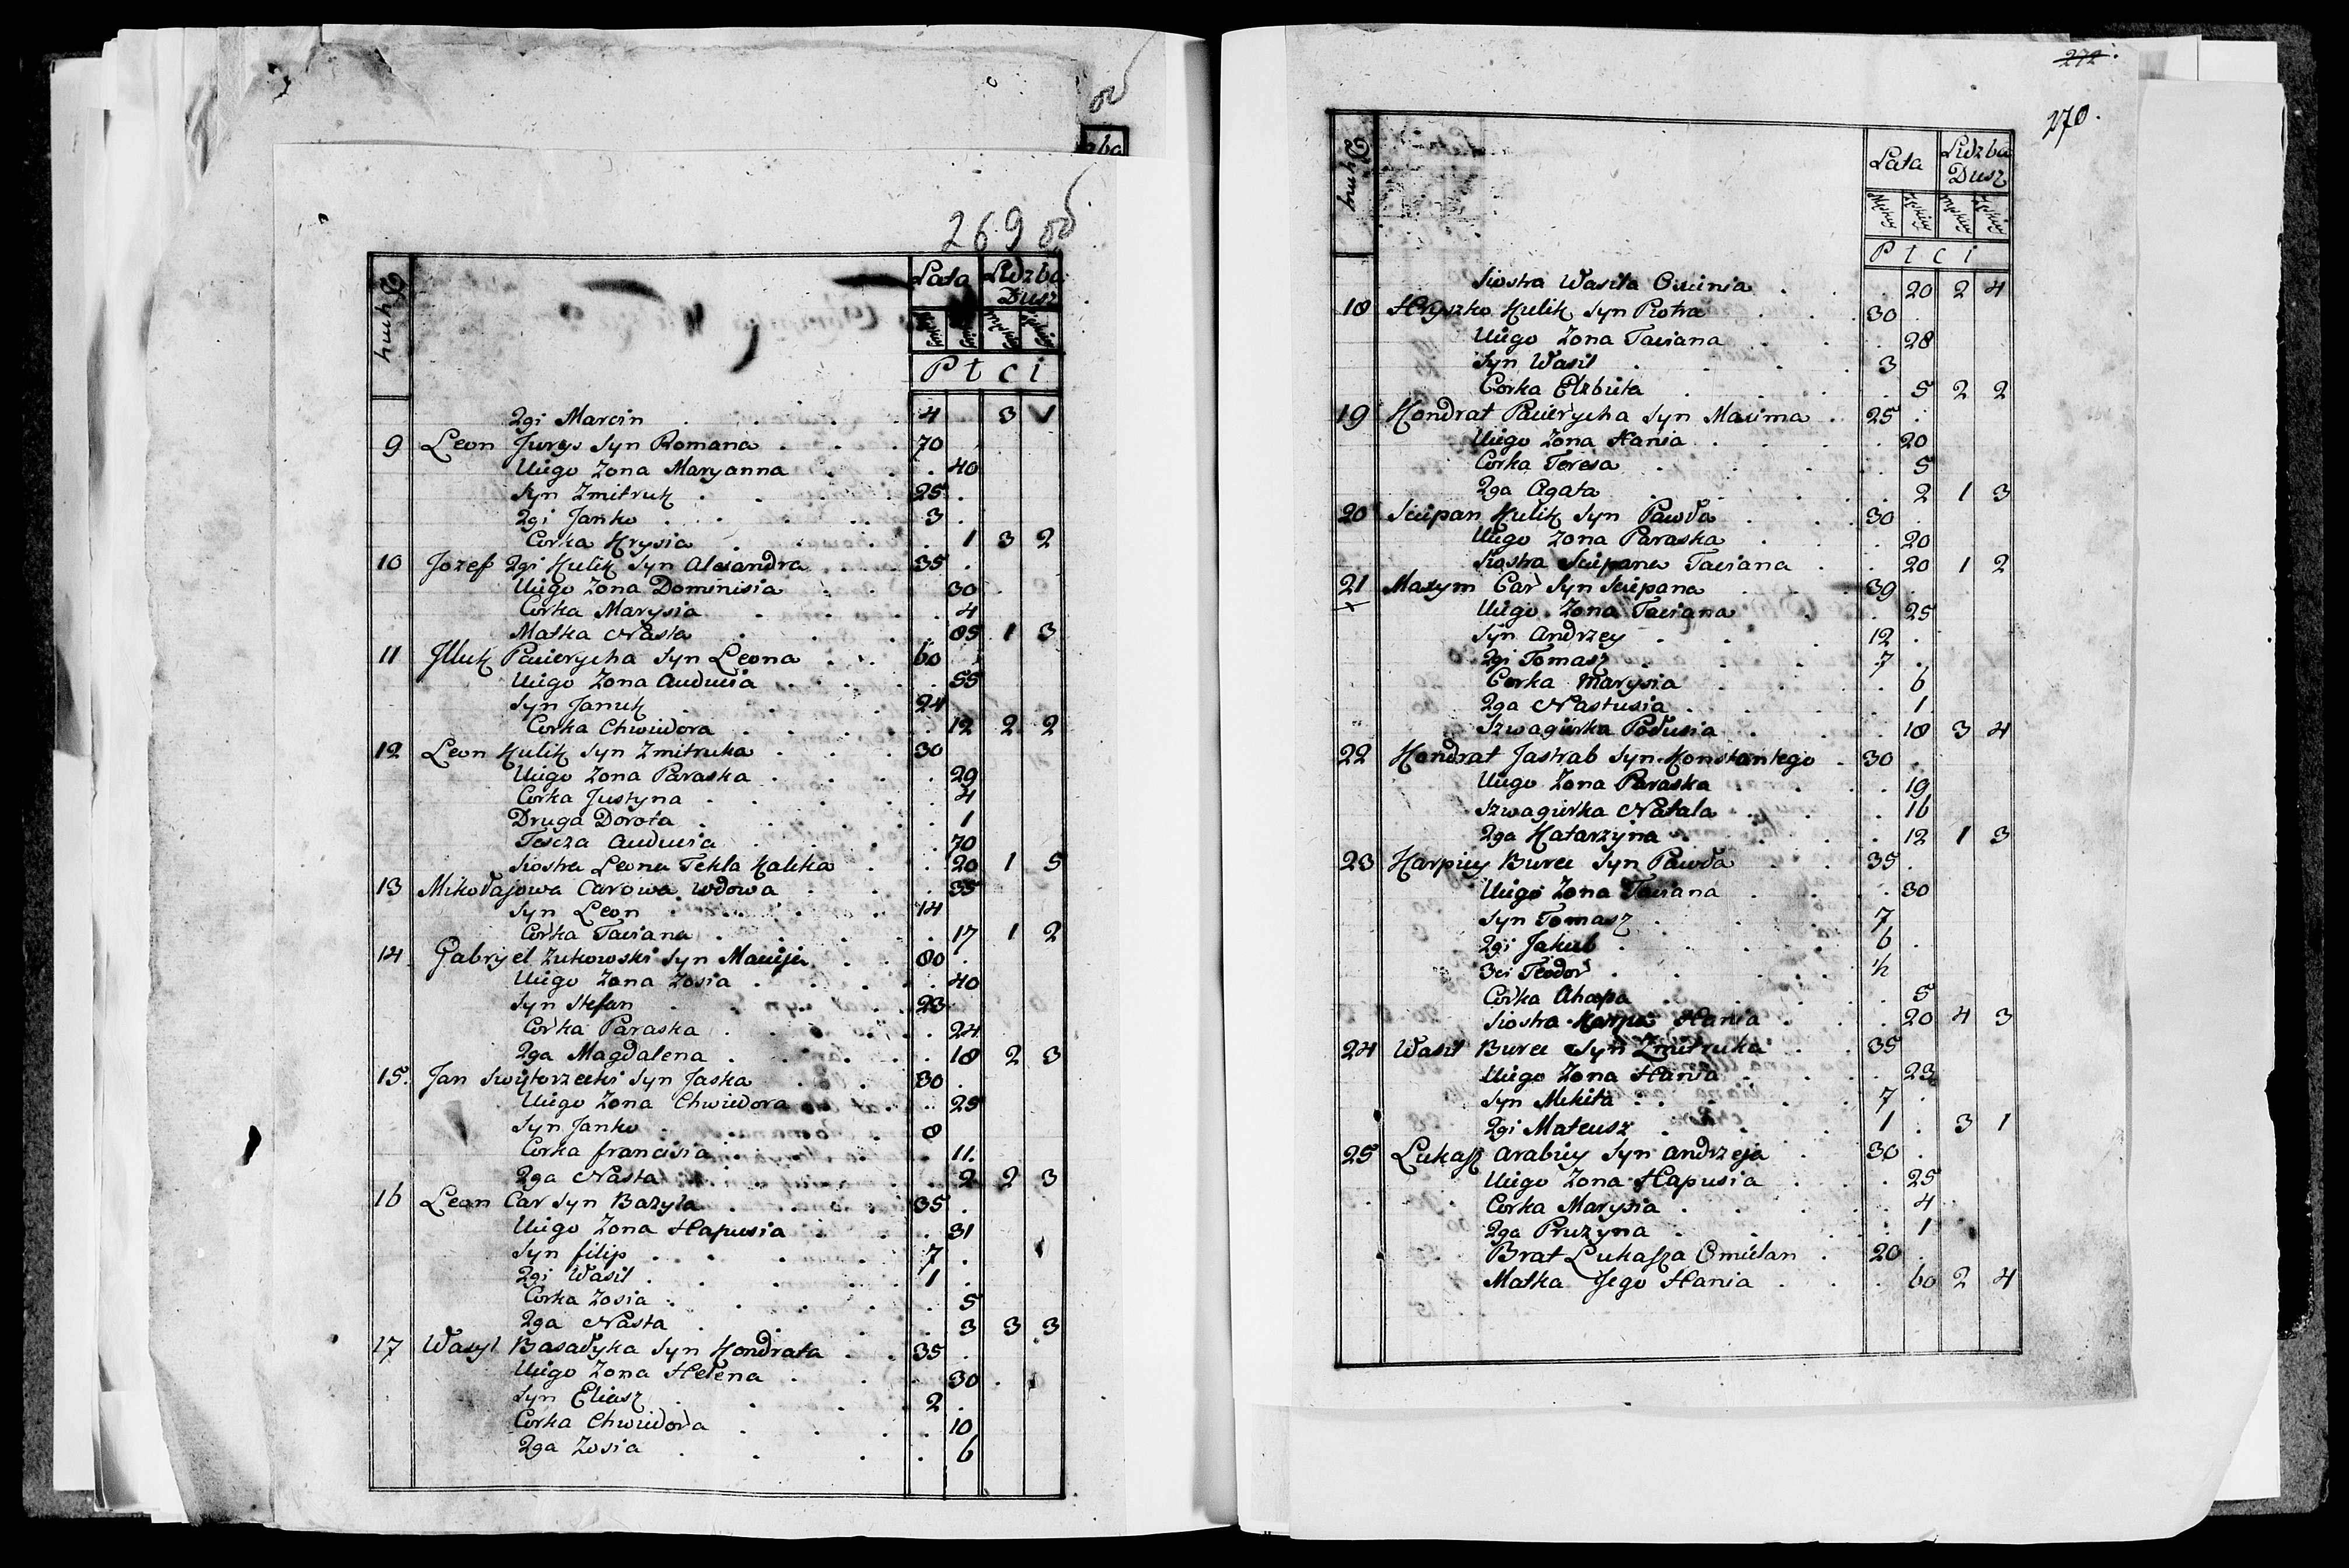 269 об
Chaty Lata Liczba Dusz
Męzkiey Żeńskiey Męzkiey Żeńskiey
P ł c i
2gi Marcin 4 3 1
9 Leon Jurys Syn Romana 70
Uiego Zona Maryanna 40
Syn Zmitruk 25
2gi Janko 3
Corka Krysia 1 3 2
10 Jozef 2gi Kulik Syn Alexandra 35
Uiego Zona Dominisia 30
Corka Marysia 4
Matka Nasta 85 1 3
11 Illuk Pacierycha Syn Leona 60
Uiego Zona Audocia 55
Syn Januk 24
Corka Chwiedora 12 2 2
12 Leon Kulik Syn Zmitruka 30
Uiego Zona Paraska 29
Corka Justyna 4
Druga Dorota 1
Tescza Audocia 70
Siostra Leona Tekla Kaleka 20 1 5
13 Mikołajowa Carowa wdowa 35
Syn Leon 14
Corka Taciana 17 1 2
14 Gabryel Zukowski Syn Macieja 80
Uiego Zona Zosia 40
Syn Stefan 23
Corka Paraska 24
2ga Magdalena 18 2 3
15. Jan Swiętorzecki Syn Jaska 30
Uiego Zona Chwiedora 25
Syn Janko 8
Corka francisia 11.
2ga Nasta 2 2 3
16 Leon Car Syn Bazyla 35
Uiego Zona Hapusia 31
Syn filip 7
2gi Wasil 1
Corka Zosia 5
2ga Nasta 3 3 3
17 Wasyl Basałyka Syn Kondrata 35
Uiego Zona Helena 30
Syn Eliasz 2
Corka Chwiedora 10
2ga Zosia 6
272
270.
Chaty Lata Liczba Dusz
Męzkiey Żeńskiey Męzkiey Żeńskiey
P ł c i
Siostra Wasila 20 2 4
18 Hryszko Kulik Syn Piotra 30
Uiego Zona Taciana 28
Syn Wasil 3
Corka Elzbieta 5 2 2
19 Kondrat Pacierycha Syn Maxima 25
Uiego Zona Hania 20
Corka Teresa 5
2ga Agata 2 1 3
20 Sciepan Kulik Syn Pawła 30
Uiego Zona Paraska 20
Siostra Sciepana Taciana 20 1 2
21 Maxym Car Syn Sciepana 39
Uiego Zona Taciana 25
Syn Andrzey 12
2gi Tomasz 7
Corka Marysia 6
2ga Nastusia 1
Szwagierka Połusia 18 3 4
22 Kondrat Jastrab Syn Konstantego 30
Uiego Zona Paraska 19
Szwagierka Natala 16
2ga Katarzyna 12 1 3
23 Karpiey Burec Syn Pawła 35
Uiego Zona Taciana 30
Syn Tomasz 7
2gi Jakub 6
3ci Teodor ½
Corka Ahapa 5
Siostra Karpia Hania 20 4 3
24 Wasil Burec Syn Zmitruka 35
Uiego Zona Hania 23
Syn Mikita 7
2gi Mateusz 1 3 1
25 Łukasz Arabiey Syn Andrzeja 30
Uiego Zona Hapusia 25
Corka Marysia 4
2ga Pruzyna 1
Brat Łukasza Omielan 20
Matka Jego Hania 60 2 4